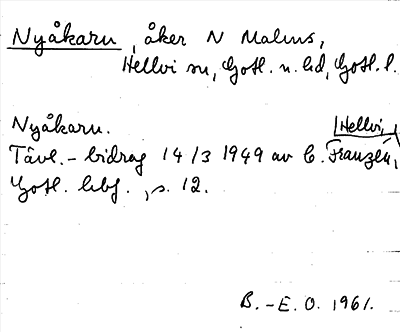 Nyåkaru, åker N Malms,
Hellvi sn, Gotl. n. hd, Gotl. l.
Nyåkaru. Hellvi,
Tävl.-bidrag 14/3 1949 av C. Franzén,
Gotl. hbf., s. 12.
B.-E. O. 1961.